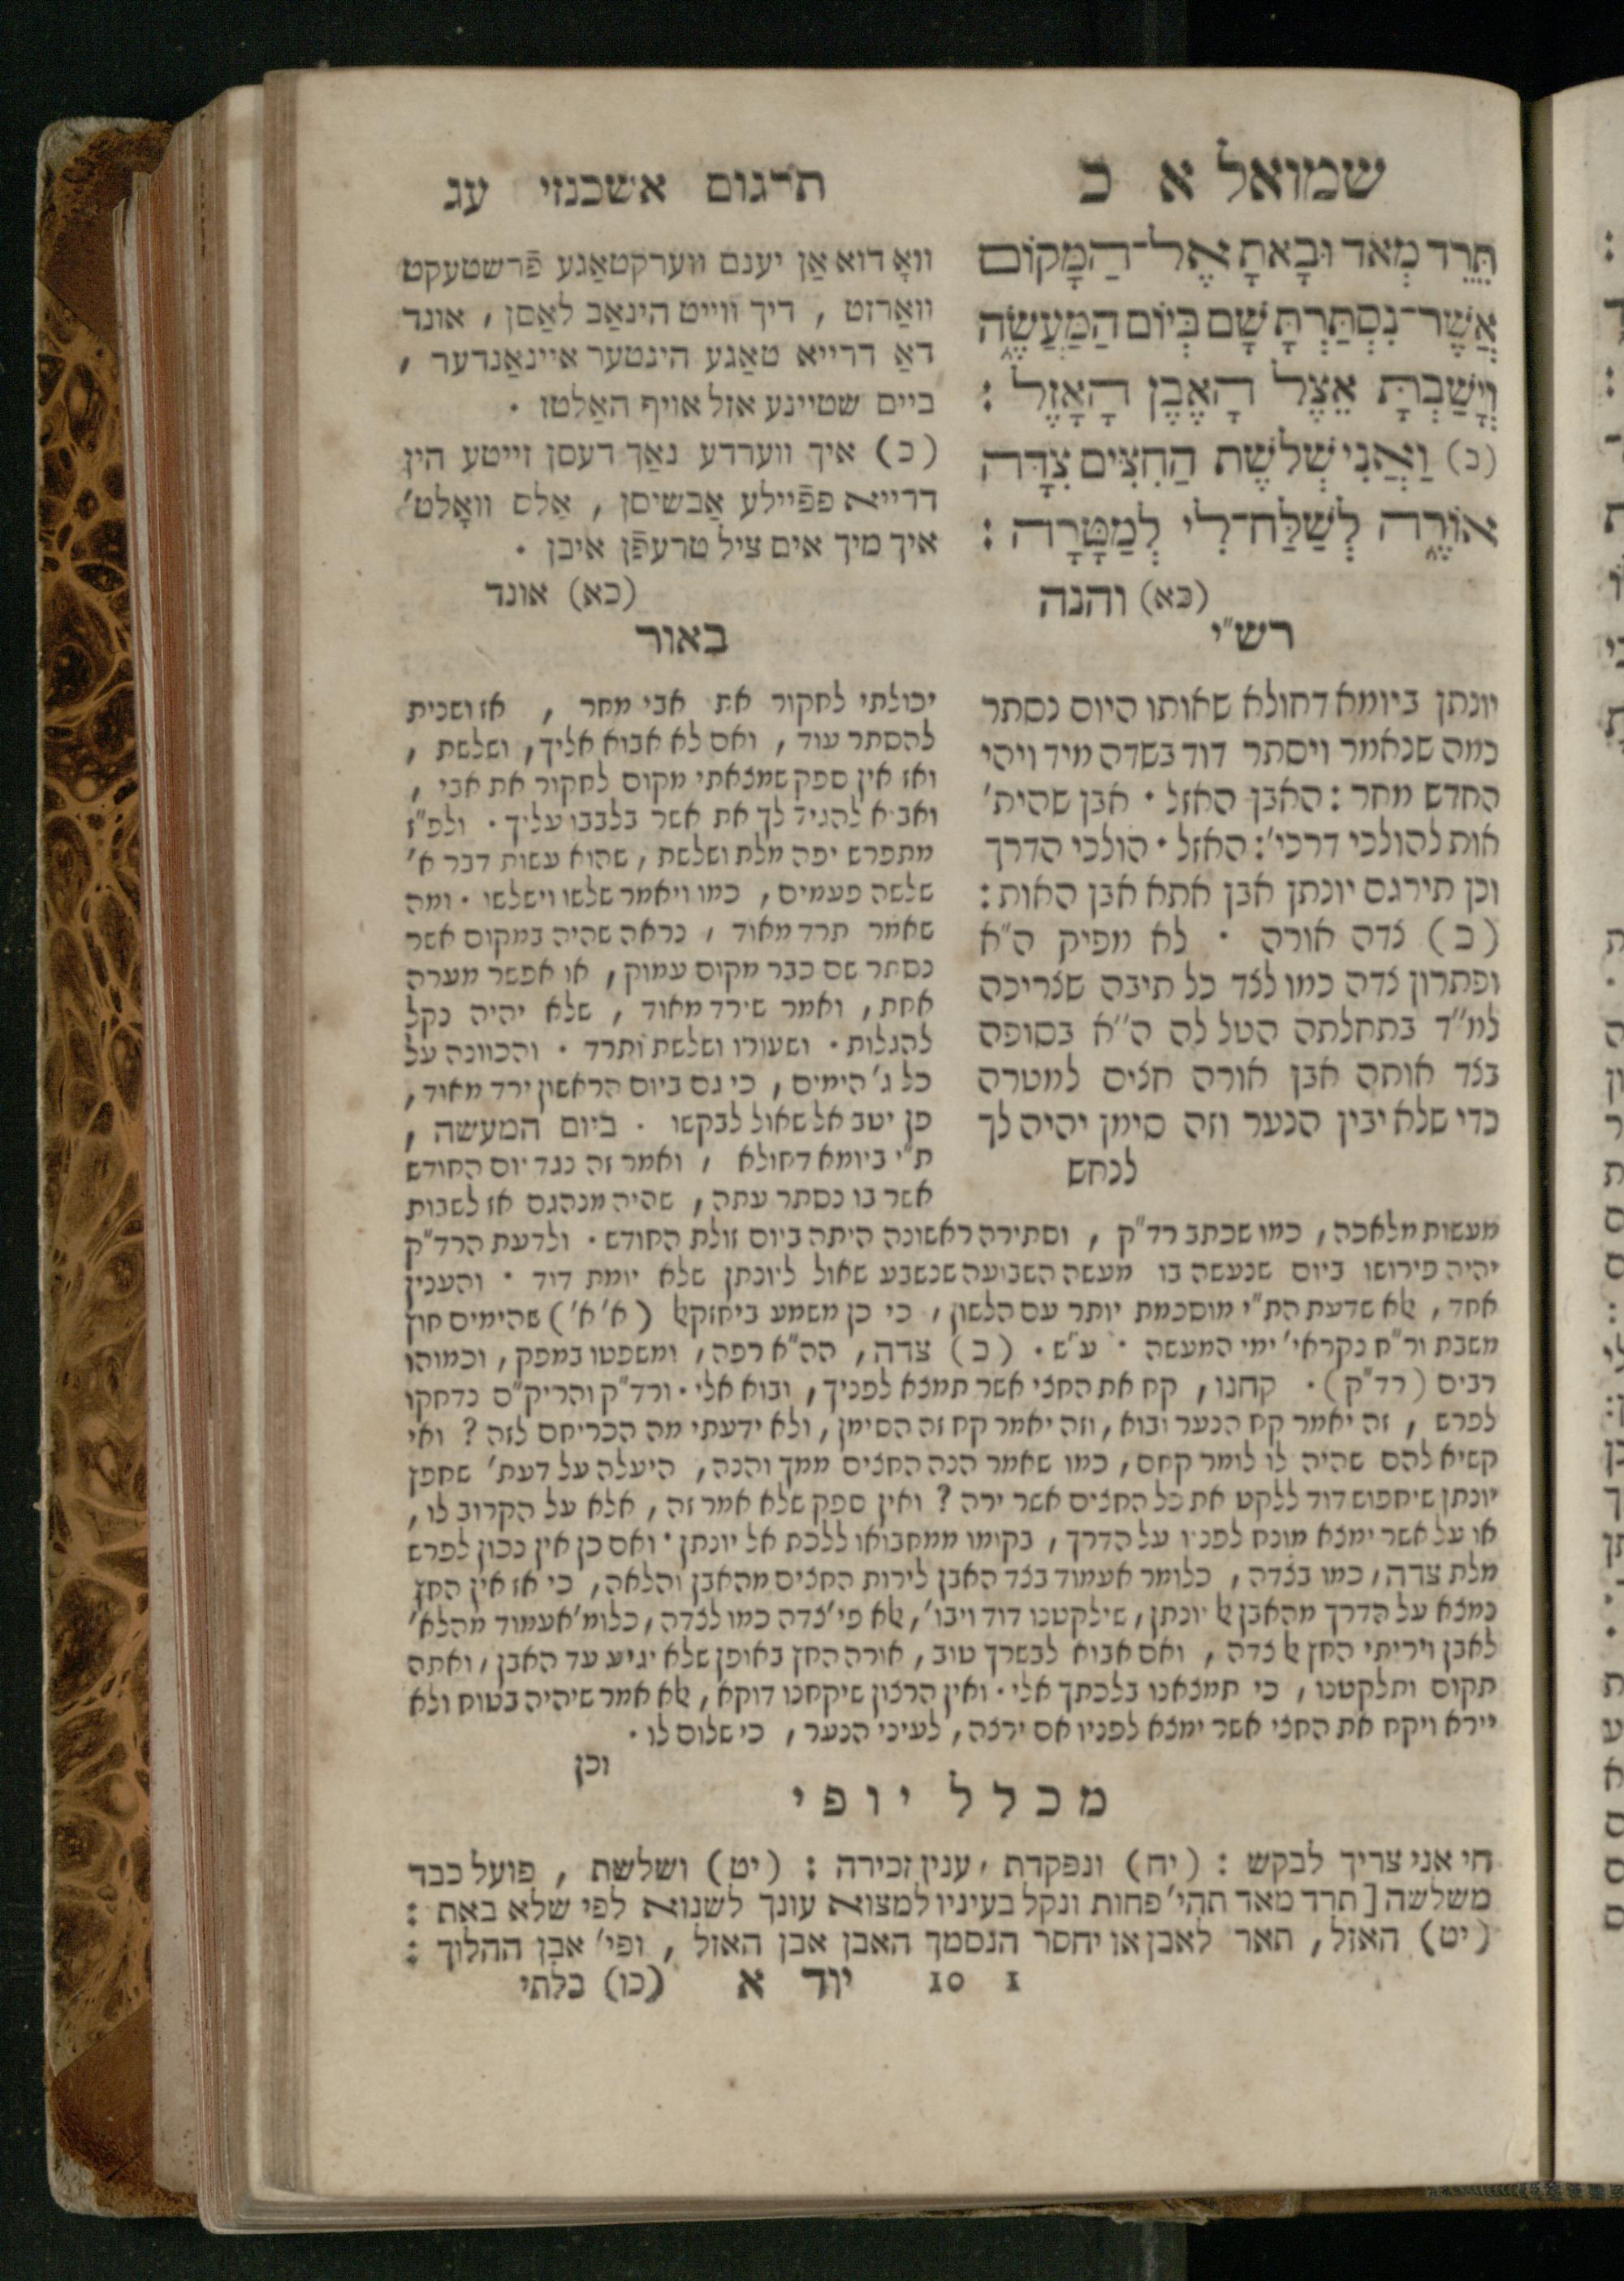 שמואל א כ
תֵּרֵד מְאֹד וּבָאתָ אֶל־הַמָּקוֹם
אֲשֶׁר־נִסְתַּרְתָּ שָׁם בְּיוֹם הַמַּעֲשֶׂה
וְיָשַׁבְתָּ אֵצֶל הָאֶבֶן הָאָזֶל :
(כ) וַאֲנִי שְׁלֹשֶׁת הַחִצִּים צִדָּה
אוֹרֶה לְשַׁלַּח־לִי לְמַטָּרָה :
(כא) והנה
תרגום אשכנזי עג
וואָ דוא אַן יענם ווערקטאַגע פֿרשטעקט
וואַרזט , דיך ווייט הינאַב לאַסן , אונד
דאַ דרייא טאַגע הינטער איינאַנדער ,
ביים שטיינע אזל אויף האַלטן .
(כ) איך ווערדע נאַך דעסן זייטע הין
דרייא פפֿיילע אַבשיסן , אַלס וואָלט'
איך מיך אים ציל טרעפֿן איבן .
(כא) אונד
רש"י
יונתן ביומא דחולא שאותו היום נסתר
כמה שנאמר ויסתר דוד בשדה מיד ויהי
החדש מחר : האבן האזל . אבן שהית'
אות להולכי דרכי' : האזל . הולכי הדרך
וכן תירגם יונתן אבן אתא אבן האות :
(כ) צדה אורה . לא מפיק ה"א
ופתרון צדה כמו לצד כל תיבה שצריכה
למ"ד בתחלתה הטל לה ה"א בסופה
בצד אותה אבן אורה חצים למטרה
כדי שלא יבין הנער וזה סימן יהיה לך
לנחש
באור
יכולתי לחקור את אבי מחר , אז ושנית
להסתר עוד , ואם לא אבוא אליך , ושלשת ,
ואז אין ספק שמצאתי מקום לחקור את אבי ,
ואבא להגיד לך את אשר בלבבו עליך . ולפ"ז
מתפרש יפה מלת ושלשת , שהוא עשות דבר א'
שלשה פעמים , כמו ויאמר שלשו וישלשו . ומה
שאמר תרד מאוד , נראה שהיה במקום אשר
נסתר שם כבר מקום עמוק , או אפשר מערה
אחת , ואמר שירד מאוד , שלא יהיה נקל
להגלות . ושעורו ושלשת ותרד . והכוונה על
כל ג' הימים , כי גם ביום הראשון ירד מאוד ,
פן ישב אל שאול לבקשו . ביום המעשה ,
ת"י ביומא דחולא , ואמר זה נגד יום החודש
אשר בו נסתר עתה , שהיה מנהגם אז לשבות
מעשות מלאכה , כמו שכתב רד"ק , וסתירה ראשונה היתה ביום זולת החודש . ולדעת הרד"ק
יהיה פירושו ביום שנעשה בו מעשה השבועה שנשבע שאול ליונתן שלא יומת דוד . והענין
אחד , אלא שדעת הת"י מוסכמת יותר עם הלשון , כי כן משמע ביחזקאל (א' א') שהימים חוץ
משבת ור"ח נקראי' ימי המעשה . ע"ש . (כ) צדה , הה"א רפה , ומשפטו במפק , וכמוהו
רבים (רד"ק) . קחנו , קח את החצי אשר תמצא לפניך , ובוא אלי . ורד"ק והריק"ם נדחקו
לפרש , זה יאמר קח הנער ובוא , וזה יאמר קח זה הסימן , ולא ידעתי מה הכריחם לזה ? ואי
קשיא להם שהיה לו לומר קחם , כמו שאמר הנה החצים ממך והנה , היעלה על דעת' שחפץ
יונתן שיחפוש דוד ללקט את כל החצים אשר ירה ? ואין ספק שלא אמר זה , אלא על הקרוב לו ,
או על אשר ימצא מונח לפניו על הדרך , בקומו ממחבואו ללכת אל יונתן . ואם כן אין נכון לפרש
מלת צדה , כמו בצדה , כלומר אעמוד בצד האבן לירות החצים מהאבן והלאה , כי אז אין החץ
נמצא על הדרך מהאבן אל יונתן , שילקטנו דוד ויבו' , אלא פי' צדה כמו לצדה , כלומ' אעמוד מהלא'
לאבן ויריתי החץ אל צדה , ואם אבוא לבשרך טוב , אורה החץ באופן שלא יגיע עד האבן , ואתה
תקום ותלקטנו , כי תמצאנו בלכתך אלי . ואין הרצון שיקחנו דוקא , אלא אמר שיהיה בטוח ולא
יירא ויקח את החצי אשר ימצא לפניו אם ירצה , לעיני הנער , כי שלום לו .
וכן
מכלל יופי
חי אני צריך לבקש : (יח) ונפקדת , ענין זכירה : (יט) ושלשת , פועל כבד
משלשה [תרד מאד תהי' פחות ונקל בעיניו למצוא עונך לשנוא לפי שלא באת :
(יט) האזל , תאר לאבן או יחסר הנסמך האבן אבן האזל , ופי' אבן ההלוך :
1 10 יוד א (כו) בלתי